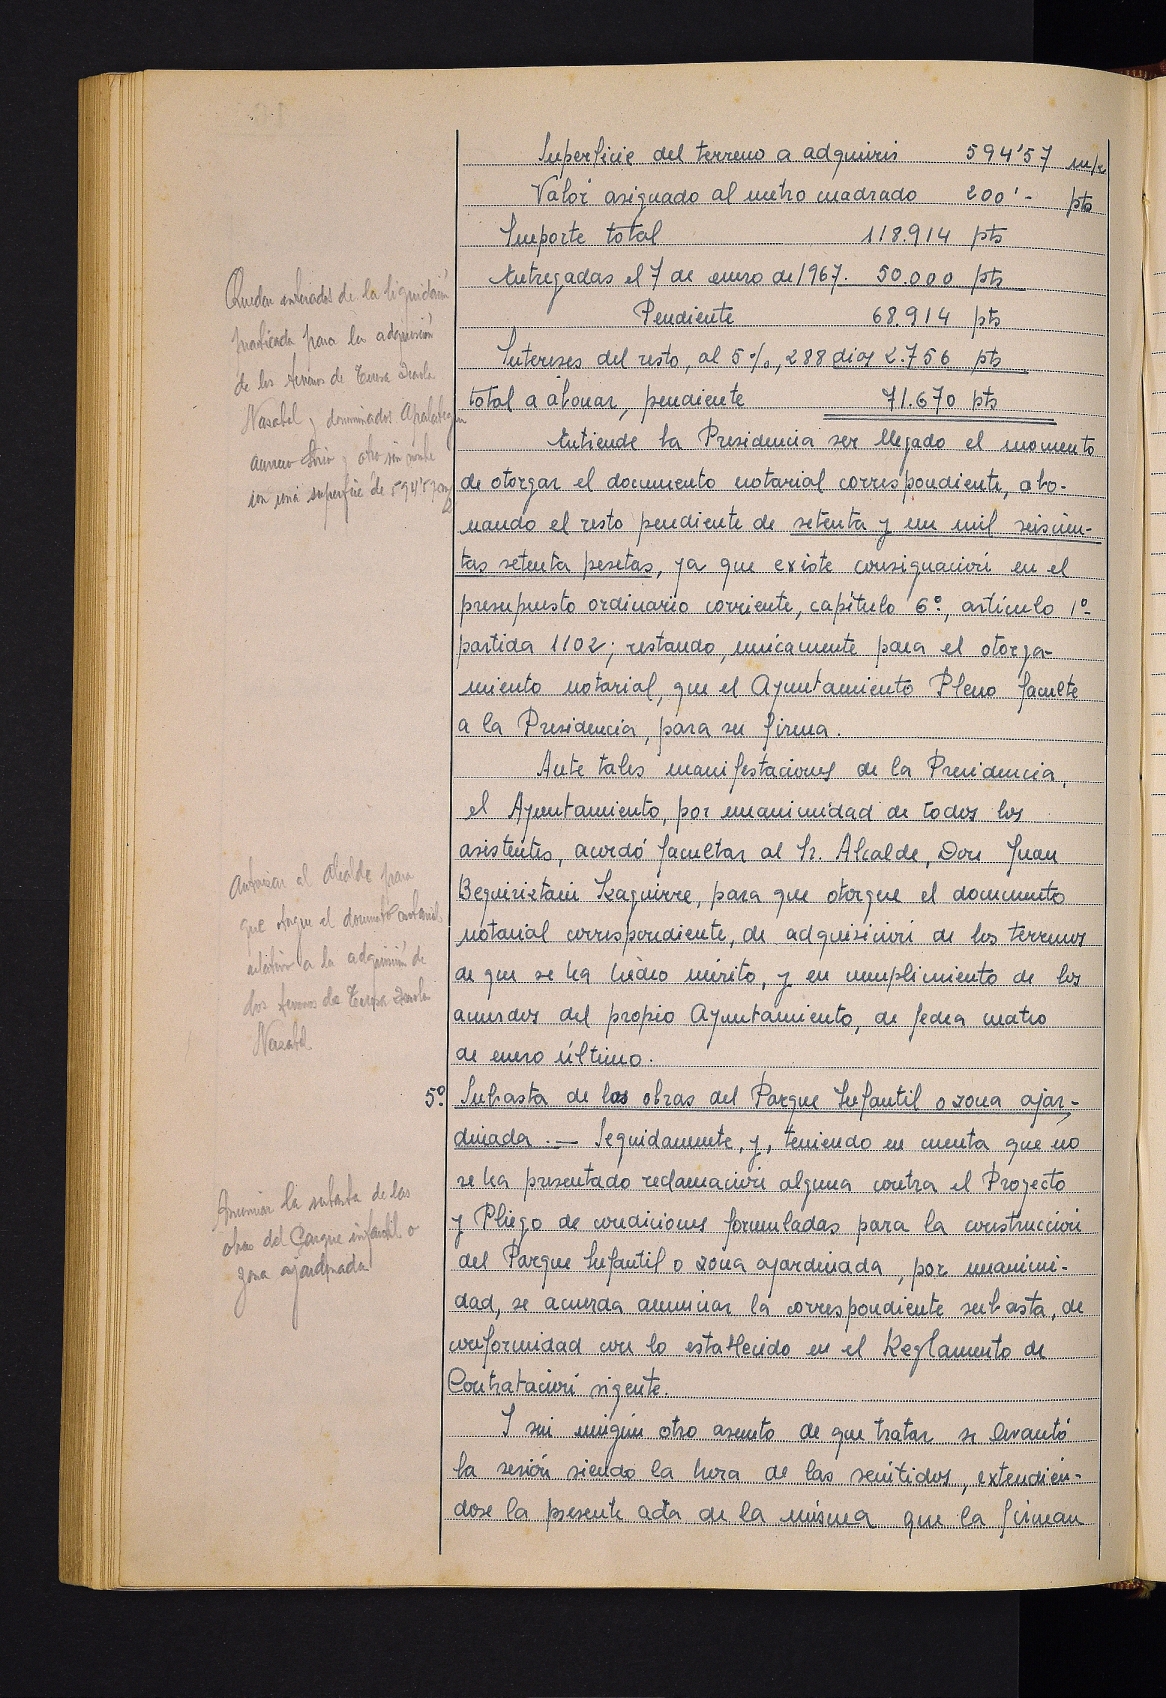 Superficie del terreno a adquirir 594'57 m/2
Valor asignado al metro cuadrado 200'- pts
Importe total 118.914 pts
Entregadas el 7 de enero de 1967. 50.000 pts
Pendiente 68.914 pts
Intereses del resto, al 5%, 288 dias 2.756 pts
total a abonar, pendiente 71.670 pts
Entiende la Presidencia ser llegado el momento
de otorgar el documento notarial correspondiente, abo-
nando el resto pendiente de setenta y un mil seiscien-
tas setenta pesetas, ya que existe consignación en el
presupuesto ordinario corriente, capítulo 6º, artículo 1º
partida 1102; restando, unicamente para el otorga-
miento notarial, que el Ayuntamiento Pleno faculte
a la Presidencia, para su firma.
Ante tales manifestaciones de la Presidencia,
el Ayuntamiento, por unanimidad de todos los
asistentes, acordó facultar al Sr. Alcalde, Don Juan
Beguiristain Izaguirre, para que otorgue el documento
notarial correspondiente, de adquisición de los terrenos
de que se ha hecho mérito, y en cumplimiento de los
acuerdos del propio Ayuntamiento, de fecha cuatro
de enero último.
5º Subasta de las obras del Parque Infantil o zona ajar-
dinada.— Seguidamente, y, teniendo en cuenta que no
se ha presentado reclamación alguna contra el Proyecto
y Pliego de condiciones formuladas para la construcción
del Parque Infantil o zona ajardinada, por unanimi-
dad, se acuerda anunciar la correspondiente subasta, de
conformidad con lo establecido en el Reglamento de
Contratación vigente.
Y sin ningún otro asunto de que tratar se levantó
la sesión siendo la hora de las veintidos, extendién-
dose la presente acta de la misma que la firman
Quedan enterados de la liquidación
practicada para la adquisición
de los terrenos de Teresa
Nazabal y denominados
y otro sin nombre
con una superficie de 594'57 m/2
Autorizar al Alcalde para
que otorgue el documento notarial
relativo a la adquisición de
los terrenos de Teresa
Nazabal
Anunciar la subasta de las
obras del Parque infantil o
zona ajardinada